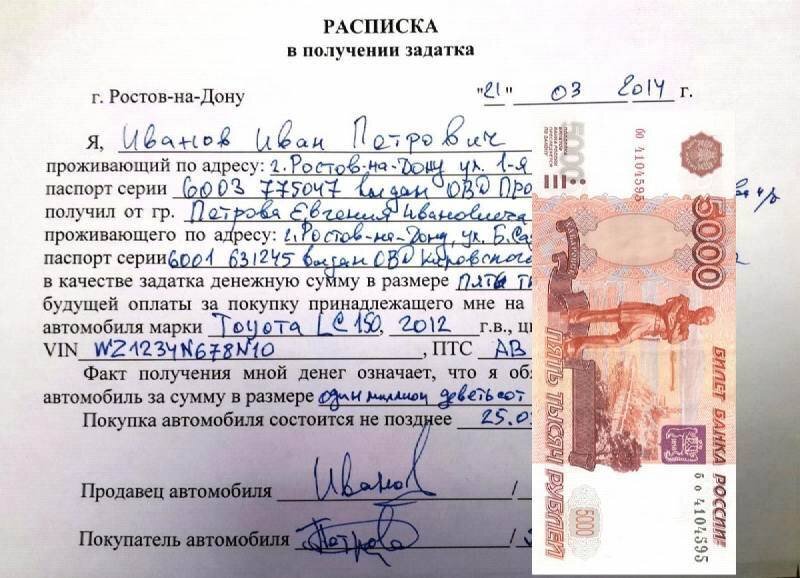 РАСПИСКА
в получении задатка
г. Ростов-на-Дону "21" 03 2014 г.
Я, Иванов Иван Петрович
проживающий по адресу: г.Ростов-на-Дону ул. 1-я
паспорт серии 6003 775047 выдан ОВД ПРО
получил от гр. Петрова Евгения Ивановича
проживающего по адресу: г.Ростов-на-Дону, ул. Б.Са
паспорт серии 6001 631245 выдан ОВД Кировского
в качестве задатка денежную сумму в размере пять т
будущей оплаты за покупку принадлежащего мне на
автомобиля марки Toyota LC 150, 2012 г.в., ц
VIN WZ1234N678N10, ПТС АВ
Факт получения мной денег означает, что я об
автомобиль за сумму в размере один миллион девятьсот
Покупка автомобиля состоится не позднее 25.0
Продавец автомобиля Иванов /
Покупатель автомобиля Петров /
5000
бо 4104595
5000
ПЯТЬ ТЫСЯЧ РУБЛЕЙ
БИЛЕТ БАНКА РОССИИ
5000
бо 4104595